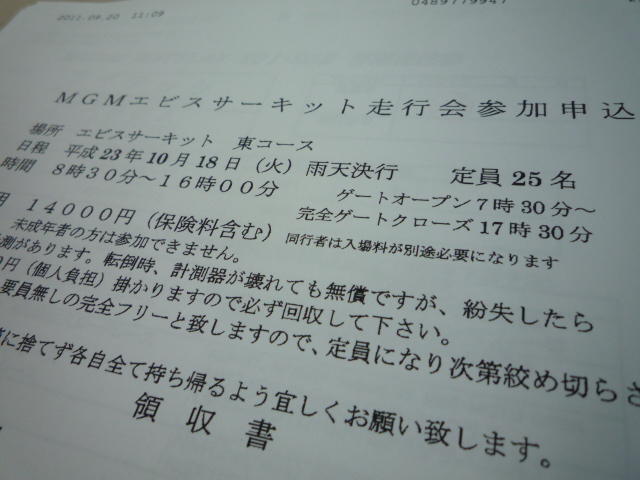 2011.09.20 11:09
0489779947
MGMエビスサーキット走行会参加申込
場所 エビスサーキット 東コース
日程 平成23年10月18日(火)雨天決行 定員25名
時間 8時30分~16時00分 ゲートオープン7時30分~
14000円(保険料含む) 完全ゲートクローズ17時30分
未成年者の方は参加できません。 同行者は入場料が別途必要になります
測があります。転倒時、計測器が壊れても無償ですが、紛失したら
円(個人負担)掛かりますので必ず回収して下さい。
要員無しの完全フリーと致しますので、定員になり次第絞め切らさ
に捨てず各自全て持ち帰るよう宜しくお願い致します。
領収書